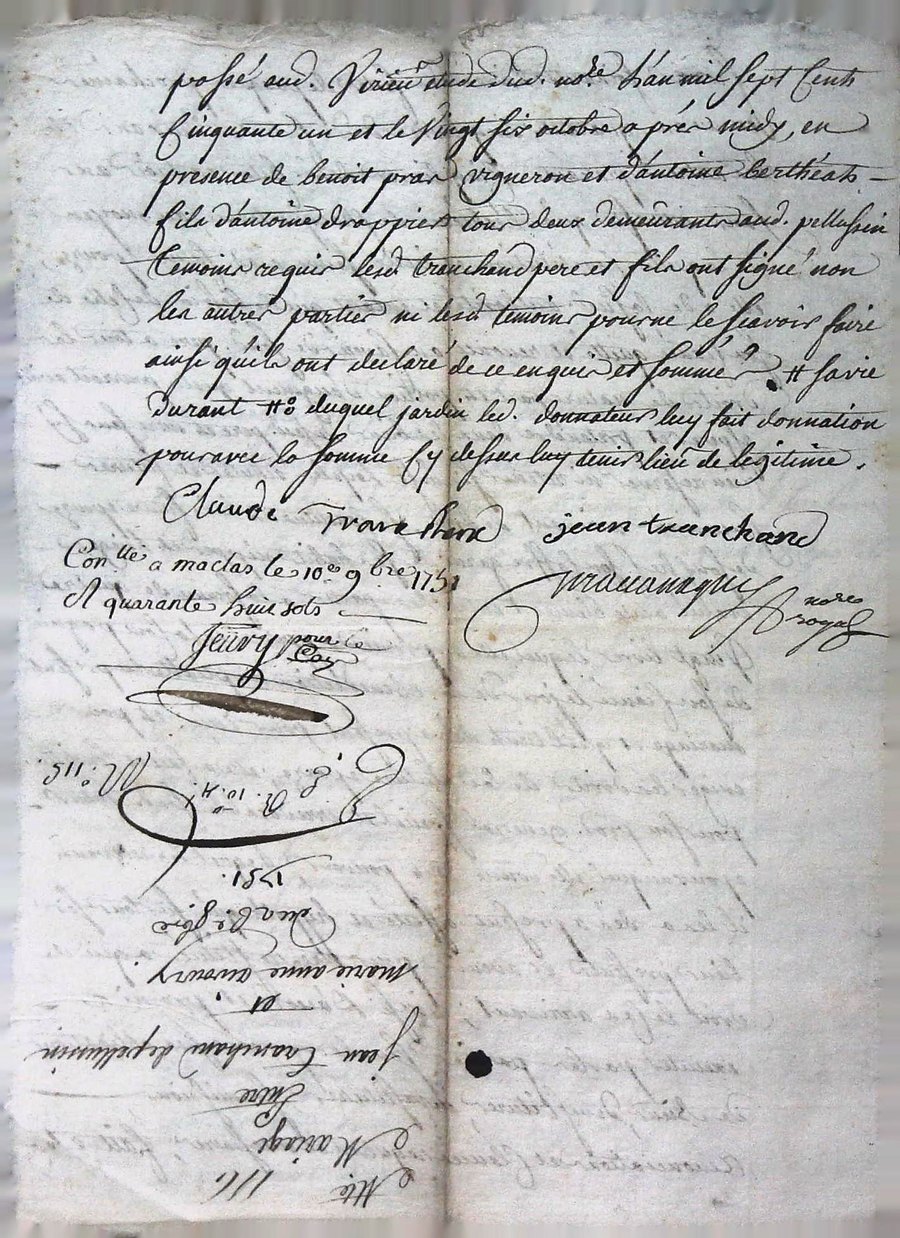 passé aud. Virieu etude dud. nore. l'an mil sept Cents
Cinquante un et le Vingt six octobre après midy, en
presence de benoit pras vigneron et d'antoine berthéas
fils d'antoine drappier tous deux demeurants aud. pellussin
temoins requis lesd. tranchand pere et fils ont signé non
les autres parties ni lesd. temoins pour ne le scavoir faire
ainsi qu'ils ont declaré de ce enquis et sommés # sa vie
durant ## duquel jardin led. donnateur luy fait donnation
pour avec la somme Cy dessus luy tenir lieu de légitime.
Claude Tranchand jean tranchand
Conllé a maclas le 10e 9bre 1751
A quarante huit sots
Jeury pour le
nore
royal
No. 115.
1751.
9bre
marie anne
et
jean tranchand de pellussin
Entre
Mariage
116